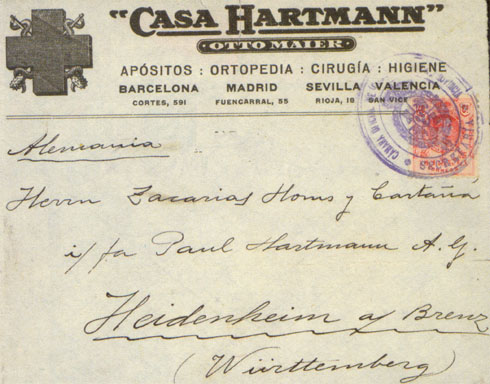 "CASA HARTMANN"
OTTO MAIER
APÓSITOS : ORTOPEDIA : CIRUGÍA : HIGIENE
BARCELONA MADRID SEVILLA VALENCIA
CORTES, 591 FUENCARRAL, 55 RIOJA, 18 SAN VICE
Alemania
Herrn Zacarias Homs y Cartañá
i/fa Paul Hartmann A. G.
Heidenheim a/ Brenz
(Württemberg)